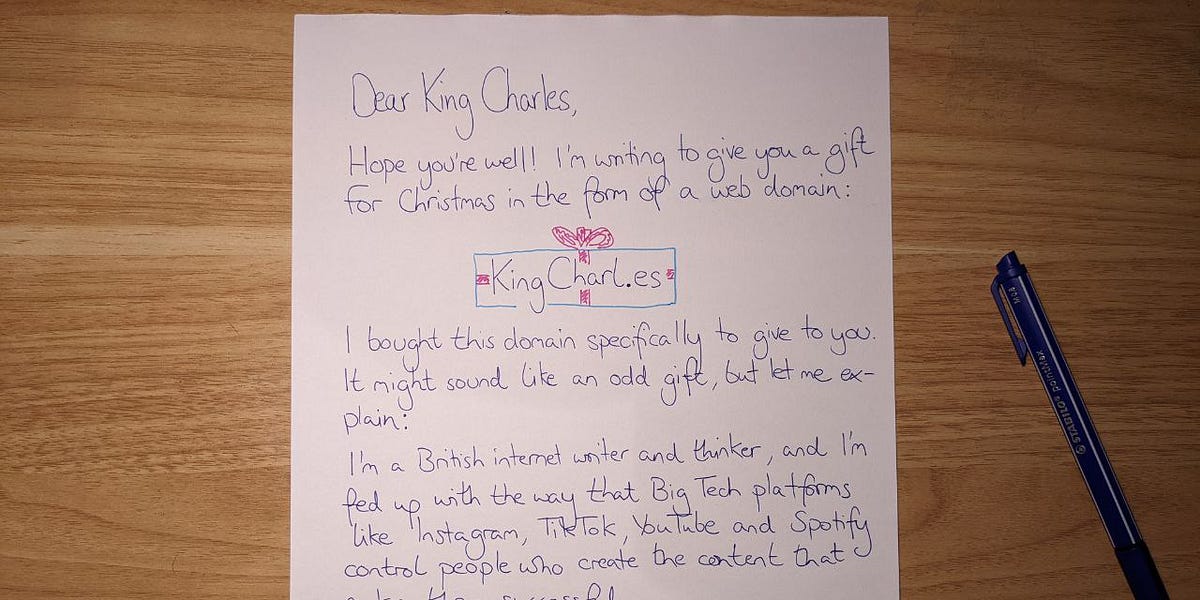 Dear King Charles,
Hope you're well! I'm writing to give you a gift
for Christmas in the form of a web domain:
KingCharl.es
I bought this domain specifically to give to you.
It might sound like an odd gift, but let me ex-
plain:
I'm a British internet writer and thinker, and I'm
fed up with the way that Big Tech platforms
like Instagram, TikTok, YouTube and Spotify
control people who create the content that
successful
STABILO pointMax